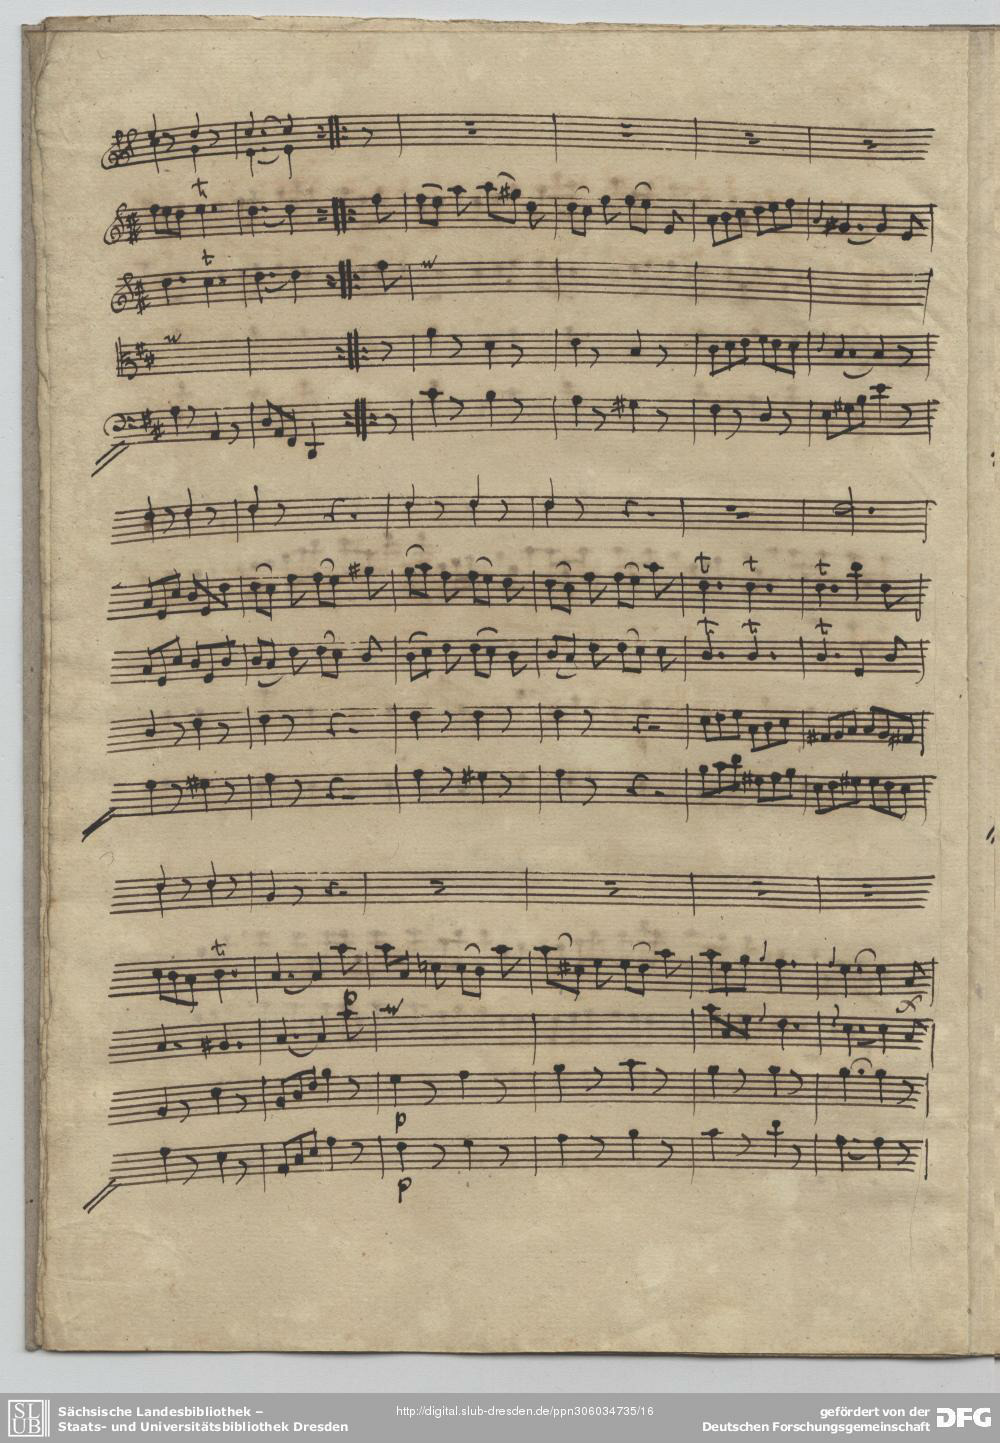 t
t
t t t
t t t
t
p
p
p
SLUB
Sächsische Landesbibliothek –
Staats- und Universitätsbibliothek Dresden
http://digital.slub-dresden.de/ppn306034735/16
gefördert von der
Deutschen Forschungsgemeinschaft
DFG